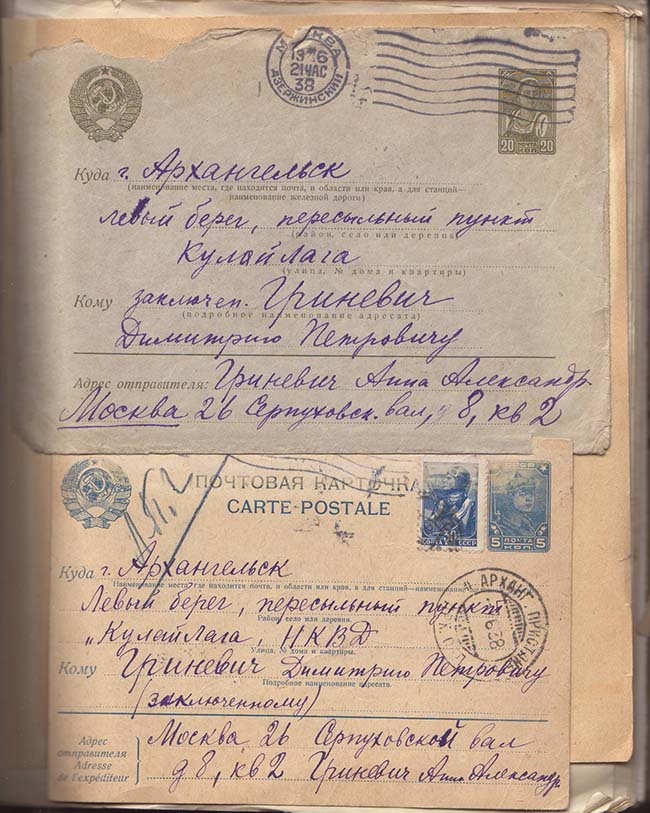 МОСКВА
13 6
21ЧАС
38
ДЗЕРЖИНСКИЙ
20 ПОЧТА КОП. 20
Куда г. Архангельск
(наименование места, где находится почта, и области или края, а для станций—
наименование железной дороги)
левый берег, пересыльный пункт
(район, село или деревня)
Кулойлага
(улица, № дома и квартиры)
Кому заключен. Гриневич
(подробное наименование адресата)
Димитрию Петровичу
Адрес отправителя: Гриневич Анна Александр
Москва 26 Серпуховск. вал, д 8, кв 2
ПОЧТОВАЯ КАРТОЧКА
CARTE-POSTALE
30
ПОЧТА СССР
5 ПОЧТА КОП. 5
Куда г. Архангельск
Наименование места, где находится почта, и области или края, а для станций—наименование железной дороги
Левый берег, пересыльный пункт
Район, село или деревня.
„Кулойлага, НКВД
Улица, № дома и квартиры.
АРХАНГ. ПРИСТАНЬ
6 38
Кому Гриневич Димитрию Петровичу
Подробное наименование адресата.
(заключенному)
Адрес
отправителя
Adresse
de l'expéditeur
Москва 26 Серпуховской вал
д 8, кв 2 Гриневич Анна Александр